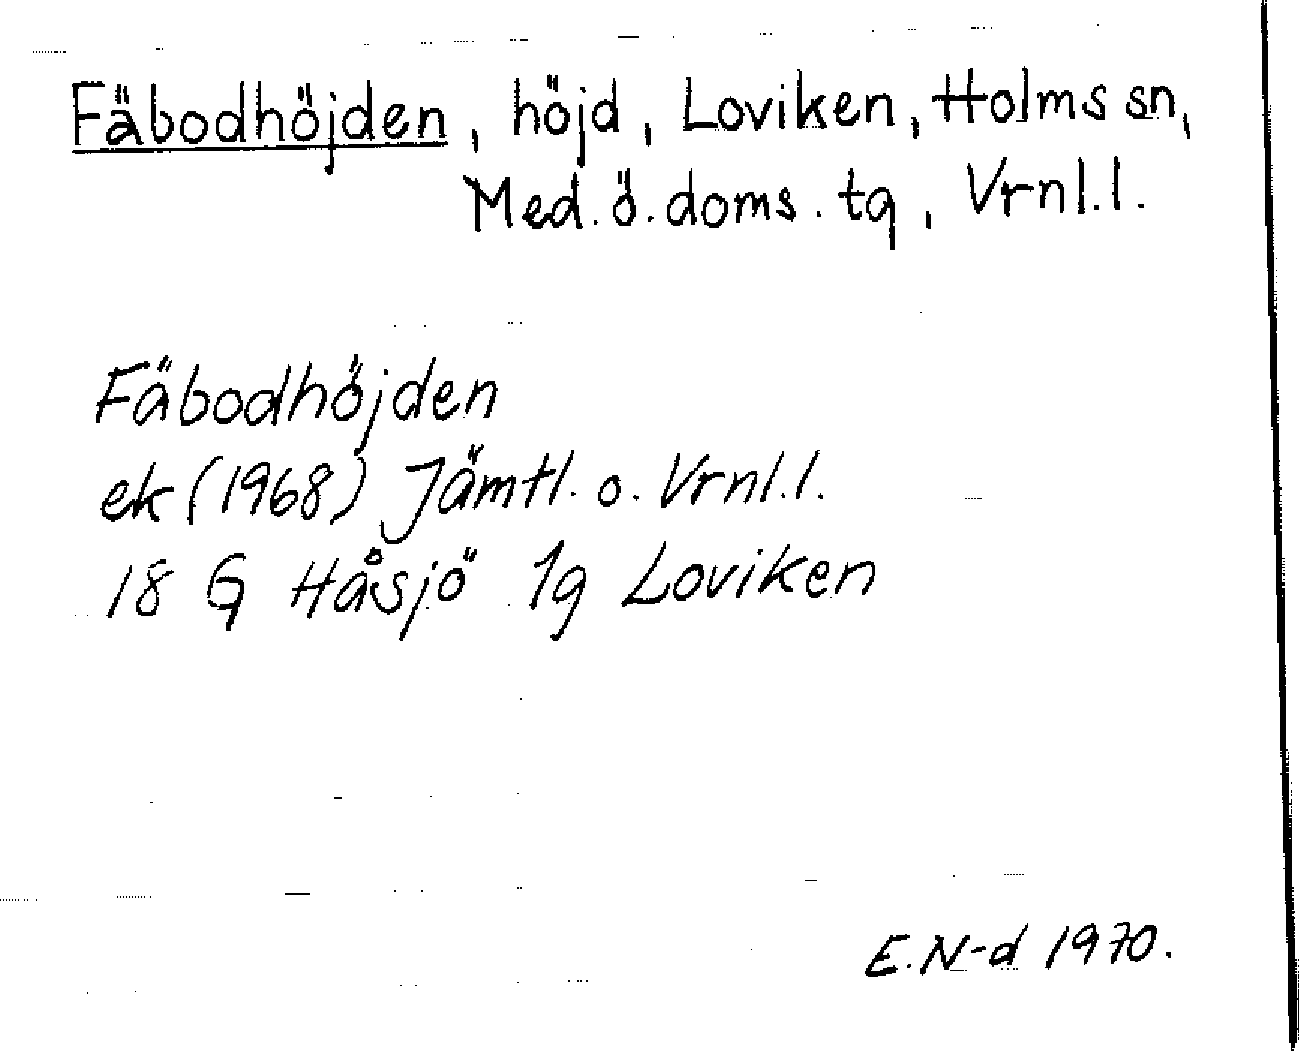 Fäbodhöjden, höjd, Loviken, Holms sn,
Med. ö. doms. tg, Vrnl.l.
Fäbodhöjden
ek (1968) Jämtl. o. Vrnl.l.
18 G Håsjö 1g Loviken
E.N-d 1970.